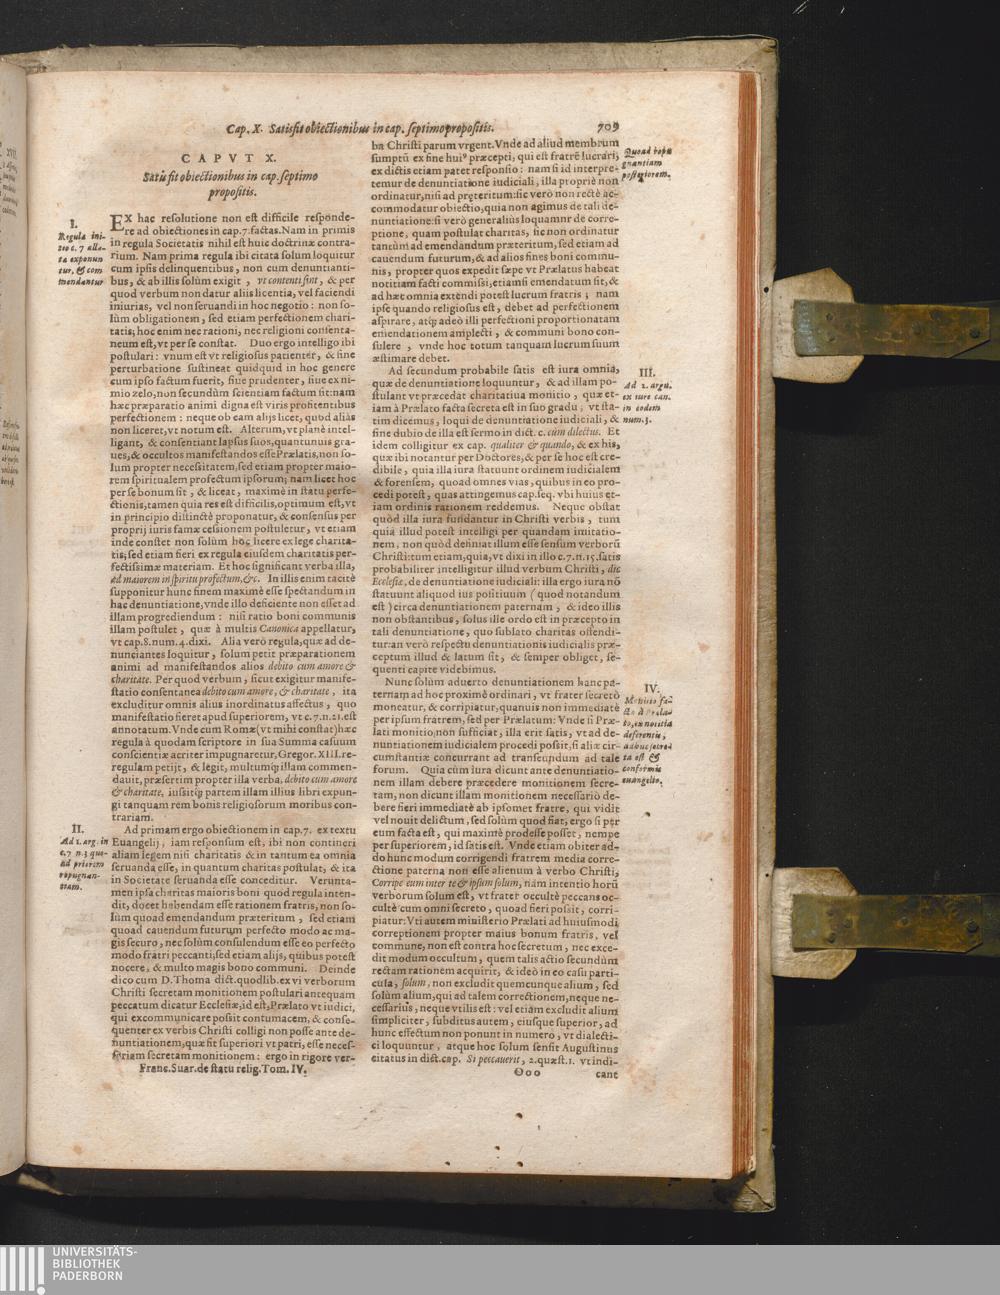 Cap. X. Satisfit obiectionibus in cap. septimo propositis.
709
CAPVT X.
Satisfit obiectionibus in cap. septimo
propositis.
I.
Regula ini-
tio c. 7 alla-
ta exponun
tur, & com
mendantur
EX hac resolutione non est difficile responde-
re ad obiectiones in cap.7. factas. Nam in primis
in regula Societatis nihil est huic doctrinæ contra-
rium. Nam prima regula ibi citata solum loquitur
cum ipsis delinquentibus, non cum denuntianti-
bus, & ab illis solùm exigit, vt contenti sint, & per
quod verbum non datur aliis licentia, vel faciendi
iniurias, vel non seruandi in hoc negotio: non so-
lùm obligationem, sed etiam perfectionem chari-
tatis; hoc enim nec rationi, nec religioni consenta-
neum est, vt per se constat. Duo ergo intelligo ibi
postulari: vnum est vt religiosus patienter, & sine
perturbatione sustineat quidquid in hoc genere
cum ipso factum fuerit, siue prudenter, siue ex ni-
mio zelo, non secundùm scientiam factum sit: nam
hæc præparatio animi digna est viris profitentibus
perfectionem: neque ob eam alijs licet, quod aliàs
non liceret, vt notum est. Alterum, vt planè intel-
ligant, & consentiant lapsus suos, quantumuis gra-
ues, & occultos manifestandos esse Prælatis, non so-
lùm propter necessitatem, sed etiam propter maio-
rem spiritualem profectum ipsorum; nam licet hoc
per se bonum sit, & liceat, maximè in statu perfe-
ctionis, tamen quia res est difficilis, optimum est, vt
in principio distinctè proponatur, & consensus per
proprij iuris famæ cessionem postuletur, vt etiam
inde constet non solùm hoc licere ex lege charita-
tis, sed etiam fieri ex regula eiusdem charitatis per-
fectissimæ materiam. Et hoc significant verba illa,
ad maiorem in spiritu profectum, &c. In illis enim tacitè
supponitur hunc finem maximè esse spectandum in
hac denuntiatione, vnde illo deficiente non esset ad
illam progrediendum: nisi ratio boni communis
illam postulet, quæ à multis Canonica appellatur,
vt cap.8.num.4.dixi. Alia verò regula, quæ ad de-
nunciantes loquitur, solum petit præparationem
animi ad manifestandos alios debito cum amore &
charitate. Per quod verbum, sicut exigitur manife-
statio consentanea debito cum amore, & charitate, ita
excluditur omnis alius inordinatus affectus, quo
manifestatio fieret apud superiorem, vt c.7.n.21.est
annotatum. Vnde cum Romæ (vt mihi constat) hæc
regula à quodam scriptore in sua Summa casuum
conscientiæ acriter impugnaretur, Gregor. XIII. re-
regulam petijt, & legit, multumq; illam commen-
dauit, præsertim propter illa verba, debito cum amore
& charitate, iussitq; partem illam illius libri expun-
gi tanquam rem bonis religiosorum moribus con-
trariam.
II.
Ad 1. arg. in
c.7 n.3 quo-
ad priorem
repugnan-
tiam.
Ad primam ergo obiectionem in cap.7. ex textu
Euangelij, iam responsum est, ibi non contineri
aliam legem nisi charitatis & in tantum ea omnia
seruanda esse, in quantum charitas postulat, & ita
in Societate seruanda esse conceditur. Verunta-
men ipsa charitas maioris boni quod regula inten-
dit, docet habendam esse rationem fratris, non so-
lùm quoad emendandum præteritum, sed etiam
quoad cauendum futurum perfecto modo ac ma-
gis securo, nec solùm consulendum esse eo perfecto
modo fratri peccanti, sed etiam alijs, quibus potest
nocere, & multo magis bono communi. Deinde
dico cum D. Thoma dict. quodlib. ex vi verborum
Christi secretam monitionem postulari antequam
peccatum dicatur Ecclesiæ, id est, Prælato vt iudici,
qui excommunicare possit contumacem, & conse-
quenter ex verbis Christi colligi non posse ante de-
nuntiationem, quæ fit superiori vt patri, esse neces-
sariam secretam monitionem: ergo in rigore ver-
Franc. Suar. de statu relig. Tom. IV.
ba Christi parum vrgent. Vnde ad aliud membrum
sumptũ ex fine hui⁹ præcepti, qui est fratrẽ lucrari,
ex dictis etiam patet responsio: nam si id interpre-
temur de denuntiatione iudiciali, illa propriè non
ordinatur, nisi ad præteritum: sic verò non rectè ac-
commodatur obiectio, quia non agimus de tali de-
nuntiatione: si verò generaliùs loquamur de corre-
ptione, quam postulat charitas, sic non ordinatur
tantùm ad emendandum præteritum, sed etiam ad
cauendum futurum, & ad alios fines boni commu-
nis, propter quos expedit sæpe vt Prælatus habeat
notitiam facti commissi, etiamsi emendatum sit, &
ad hæc omnia extendi potest lucrum fratris; nam
ipse quando religiosus est, debet ad perfectionem
aspirare, atq; adeò illi perfectioni proportionatam
emendationem amplecti, & communi bono con-
sulere, vnde hoc totum tanquam lucrum suum
æstimare debet.
Quoad repu
gnantiam
posteriorem.
III.
Ad 2. argu.
ex iure can.
in eodem
num.3.
Ad secundum probabile satis est iura omnia,
quæ de denuntiatione loquuntur, & ad illam po-
stulant vt præcedat charitatiua monitio, quæ et-
iam à Prælato facta secreta est in suo gradu, vt sta-
tim dicemus, loqui de denuntiatione iudiciali, &
sine dubio de illa est sermo in dict. c. cùm dilectus. Et
idem colligitur ex cap. qualiter & quando, & ex his,
quæ ibi notantur per Doctores, & per se hoc est cre-
dibile, quia illa iura statuunt ordinem iudicialem
& forensem, quoad omnes vias, quibus in eo pro-
cedi potest, quas attingemus cap. seq. vbi huius et-
iam ordinis rationem reddemus. Neque obstat
quòd illa iura fundantur in Christi verbis, tum
quia illud potest intelligi per quandam imitatio-
nem, non quòd definiat illum esse sensum verborũ
Christi: tum etiam, quia, vt dixi in illo c.7.n.15.satis
probabiliter intelligitur illud verbum Christi, dic
Ecclesiæ, de denuntiatione iudiciali: illa ergo iura nõ
statuunt aliquod ius positiuum (quod notandum
est) circa denuntiationem paternam, & ideo illis
non obstantibus, solus ille ordo est in præcepto in
tali denuntiatione, quo sublato charitas offendi-
tur: an verò respectu denuntiationis iudicialis præ-
ceptum illud & latum sit, & semper obliget, se-
quenti capite videbimus.
IV.
Monitio fa-
cta à Præla-
to, ex notitia
deferentis,
adhuc secre-
ta est &
conformis
euangelio.
Nunc solùm aduerto denuntiationem hanc pa-
ternam ad hoc proximè ordinari, vt frater secretò
moneatur, & corripiatur, quamuis non immediatè
per ipsum fratrem, sed per Prælatum: Vnde si Præ-
lati monitio non sufficiat, illa erit satis, vt ad de-
nuntiationem iudicialem procedi possit, si aliæ cir-
cumstantiæ concurrant ad transeundum ad tale
forum. Quia cùm iura dicunt ante denuntiatio-
nem illam debere præcedere monitionem secre-
tam, non dicunt illam monitionem necessariò de-
bere fieri immediatè ab ipsomet fratre, qui vidit
vel nouit delictum, sed solùm quod fiat, ergo si per
eum facta est, qui maximè prodesse posset, nempe
per superiorem, id satis est. Vnde etiam obiter ad-
do hunc modum corrigendi fratrem media corre-
ctione paterna non esse alienum à verbo Christi,
Corripe eum inter te & ipsum solum, nàm intentio horũ
verborum solum est, vt frater occultè peccans oc-
cultè cum omni secreto, quoad fieri possit, corri-
piatur: Vti autem ministerio Prælati ad huiusmodi
correptionem propter maius bonum fratris, vel
commune, non est contra hoc secretum, nec exce-
dit modum occultum, quem talis actio secundùm
rectam rationem acquirit, & ideò in eo casu parti-
cula, solum, non excludit quemcunque alium, sed
solùm alium, qui ad talem correctionem, neque ne-
cessarius, neque vtilis est: vel etiam excludit alium
simpliciter, subditus autem, eiusque superior, ad
hunc effectum non ponunt in numero, vt dialecti-
ci loquuntur, atque hoc solum sensit Augustinus
citatus in dict. cap. Si peccauerit, 2.quæst.1. vt indi-
Ooo
cant
UNIVERSITÄTS-
BIBLIOTHEK
PADERBORN